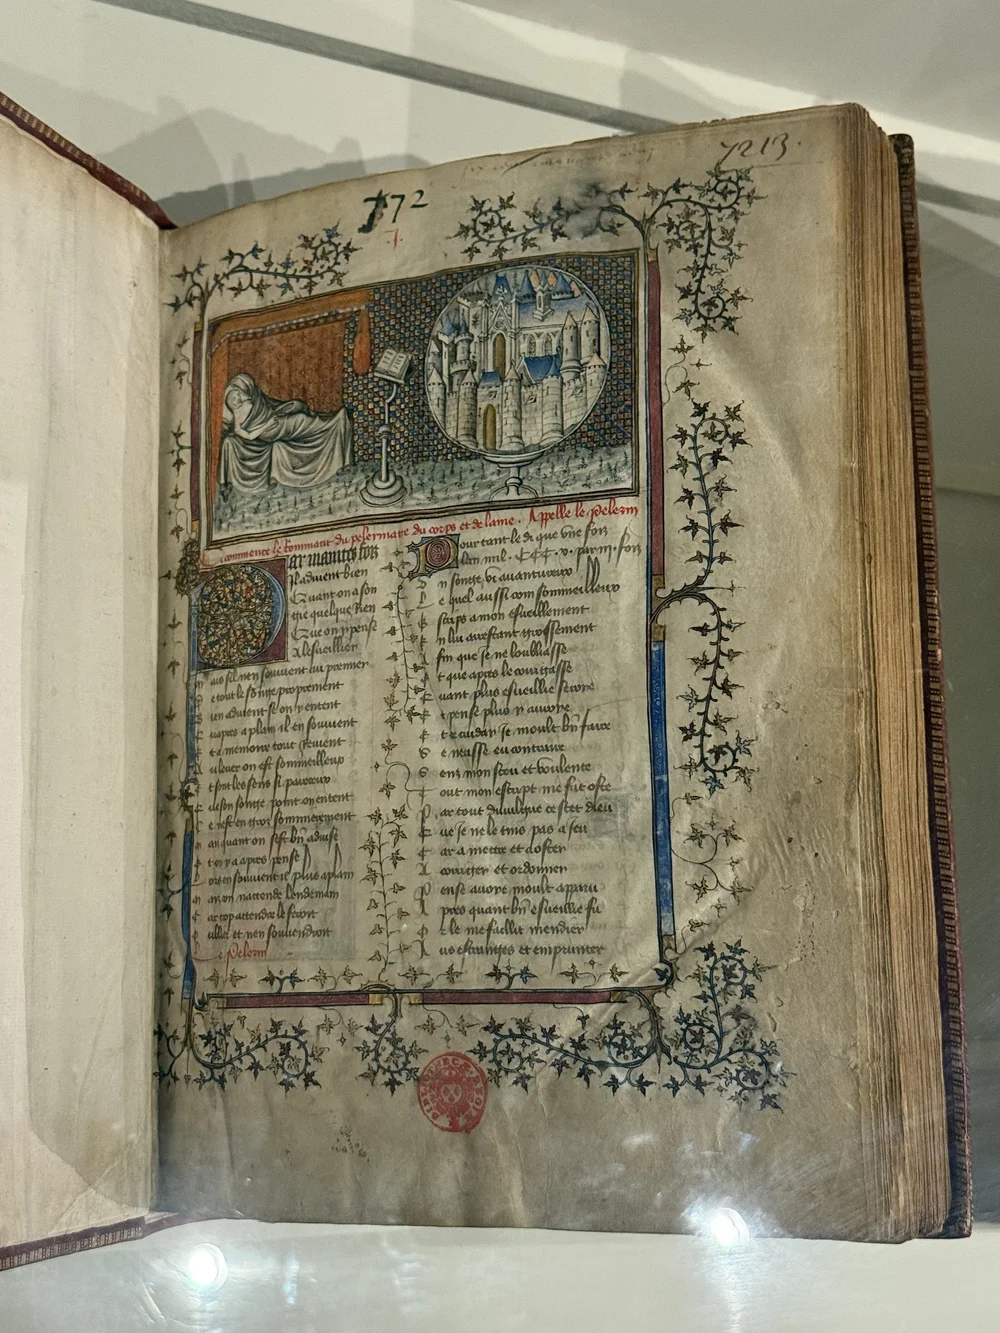 7213.
772
commence le Rommant du pelermage du corps et de lame. Appelle le Pelerin
ar maintes fois
Il advient bien
Quant on a son
gie quelque rien
Que on y pense
A lesueillier
t sil nen souvient au premier
e tout le songe proprement
ien advient se on y entent
apres a plain il en souvient
t a memoire tout revient
u lever on est sommeilleux
t sont les sens si pareceux
de son songe point on entent
e nest en gros sommierement
quant on sest bn aduise
t on y a apres pense
ors en souvient il plus a plain
on nattende lendemain
ar trop attendre le feroit
ullier et non souvendroit
Le Pelerin
our tant le di que vne fois
lan mil. CCC. v. par iii. fois
n songe vi auantureux
L e quel aussi com sommeilleux
scrips a mon esueillement
n lui arrestant grossement
fin que je ne loubliasse
t que apres le corrigasse
uant plus esueillie seroie
t pense plus y auroie
t cuiday je moult bn faire
S e neusse eu contraire
S enz mon sceu et voulente
T out mon escript me fut oste
P ar tout diuulgue ce scet dieu
ue je ne le tins pas a jeu
C ar a mettre et a oster
A corriger et ordonner
P ense auoye moult apparu
A pres quant bn esueillie fu
le me faillit mendier
A us estranges et emprunter